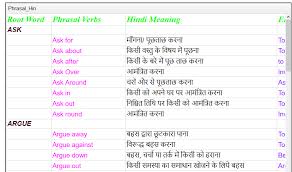 Phrasal_Hin
Root Word Phrasal Verbs Hindi Meaning
ASK
Ask for माँगना/ पूछताछ करना To
Ask about किसी वस्तु के विषय में पूछना To
Ask after किसी के बारे में पूछ ताछ करना
Ask Over आमंत्रित करना
Ask Around चारों और से पूछताछ करना
Ask in किसी को अपने घर पर आमंत्रित करना To
Ask out निश्चित तिथि पर किसी को आमंत्रित करना To
Ask round आमंत्रित करना
ARGUE
Argue away बहस द्वारा छुटकारा पाना To
Argue against विरूद्ध बहस करना To
Argue down बहस, चर्चा या तर्क में किसी को हराना
Argue out किसी समस्या का समाधान खोजने के लिये बहस